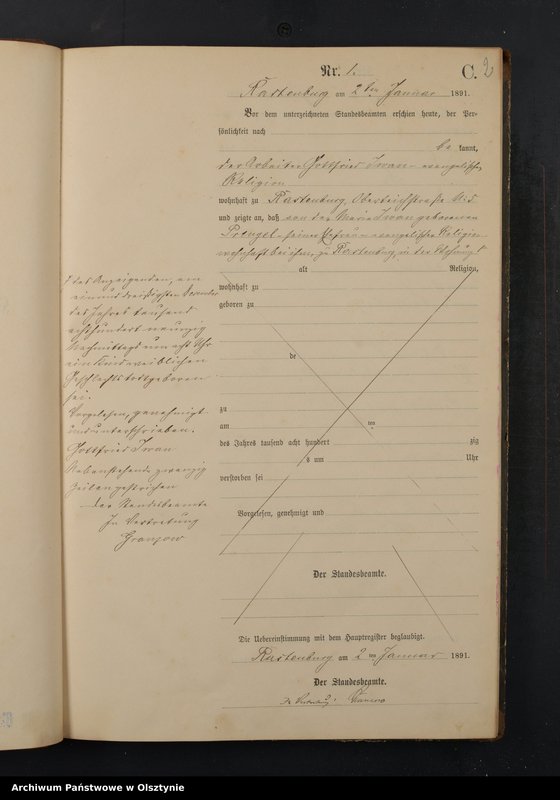 Nr. 1.
C. 2
Rastenburg am 2ten Januar 1891.
Vor dem unterzeichneten Standesbeamten erschien heute, der Per-
sönlichkeit nach
be kannt,
der Arbeiter Gottfried Iwan evangelischer
Religion
wohnhaft zu Rastenburg, Oberteichstraße
und zeigte an, daß von der Maria Iwan geborenen
Prengel seiner Ehefrau evangelischer Religion
wohnhaft bei ihm, zu Rastenburg, in der Wohnung
alt Religion,
wohnhaft zu
geboren zu
de
zu
am ten
des Jahres tausend acht hundert zig
s um Uhr
verstorben sei
Vorgelesen, genehmigt und
Der Standesbeamte.
Die Uebereinstimmung mit dem Hauptregister beglaubigt.
Rastenburg am 2 ten Januar 1891.
Der Standesbeamte.
In Vertretung:
des Anzeigenden, am
einunddreißigsten Dezember
des Jahres tausend
achthundert neunzig
Nachmittags um acht Uhr
ein Kind weiblichen
Geschlechts todtgeboren
sei.
Vorgelesen, genehmigt
und unterschrieben.
Gottfried Iwan
Nebenstehende zwanzig
Zeilen gestrichen
der Standesbeamte
In Vertretung
Granzow
Archiwum Państwowe w Olsztynie